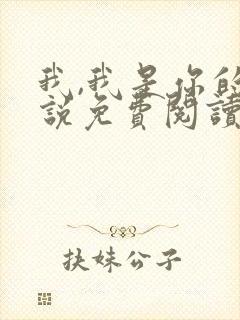 我,我是你的
說免費閱讀
扶妹公子